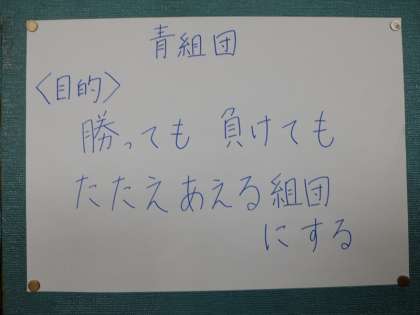 青組団
〈目的〉
勝っても 負けても
たたえあえる組団
にする